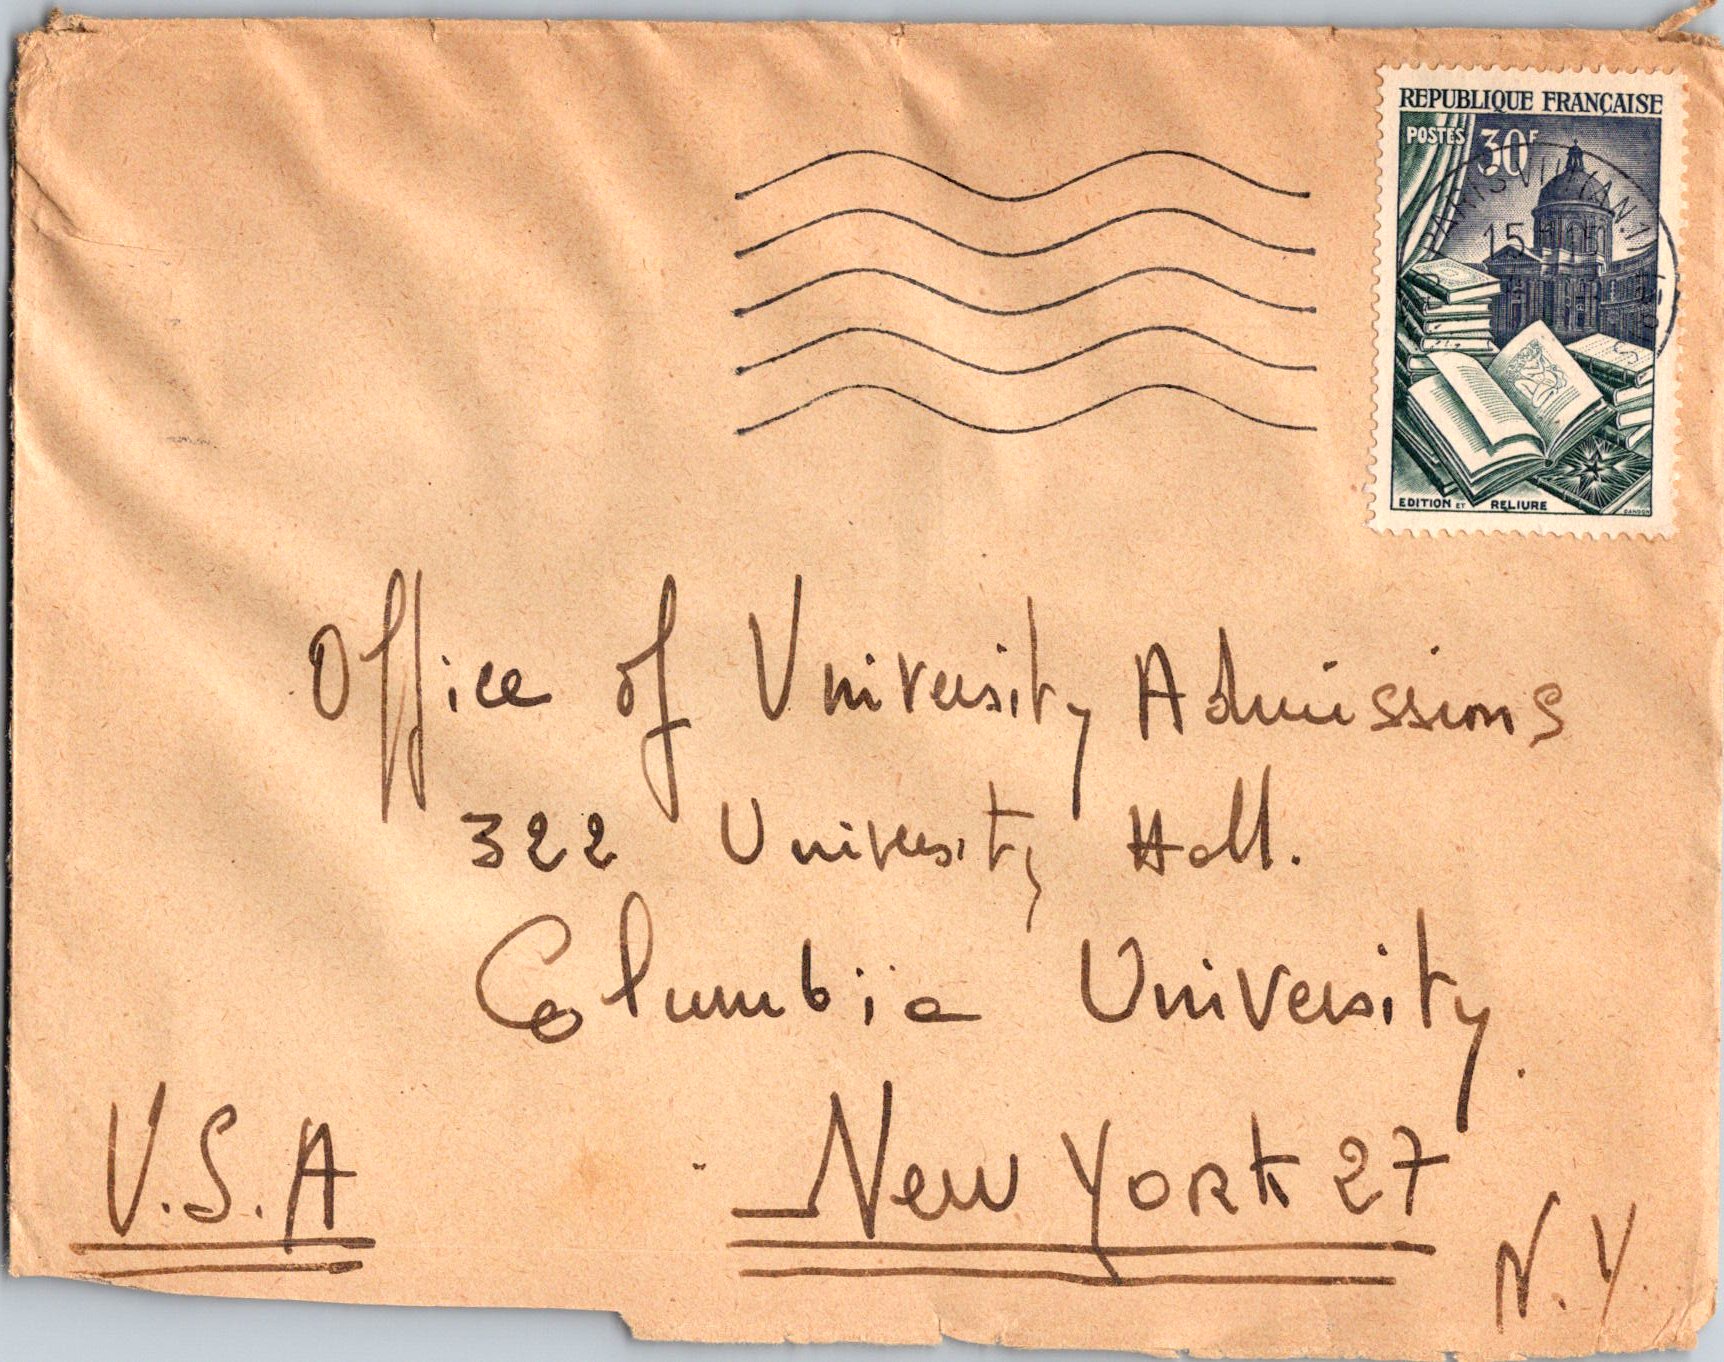 REPUBLIQUE FRANÇAISE
POSTES 30F
PARIS VIII
15H15
EDITION ET RELIURE
Office of University Admissions
322 University Hall.
Columbia University.
U.S.A
New York 27
N.Y.